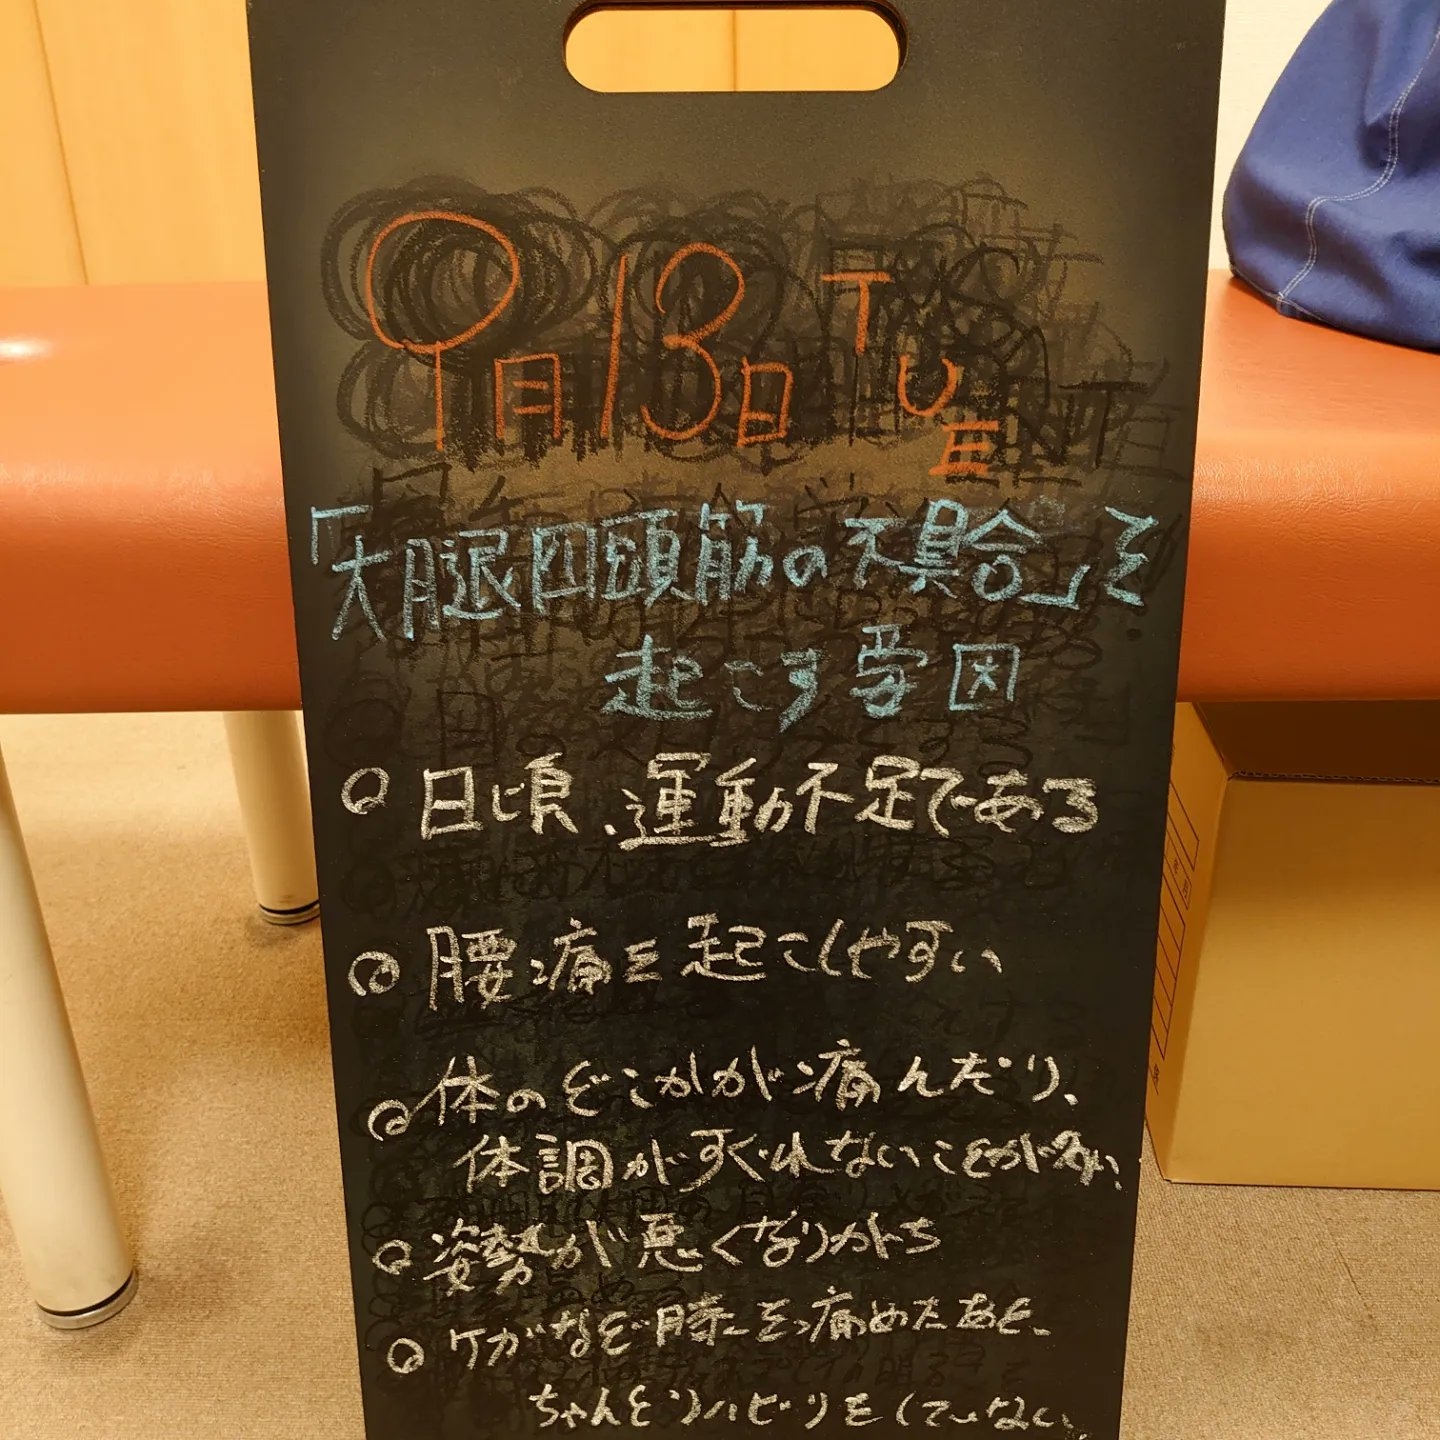 9月13日 TUE
「大腿四頭筋の不具合」を
起こす要因
日頃、運動不足である
腰痛を起こしやすい
体のどこかが痛んだり、
体調がすぐれないことが多い、
姿勢が悪くなりがち
ケガなどで膝を痛めたあと、
ちゃんとリハビリをしていない、